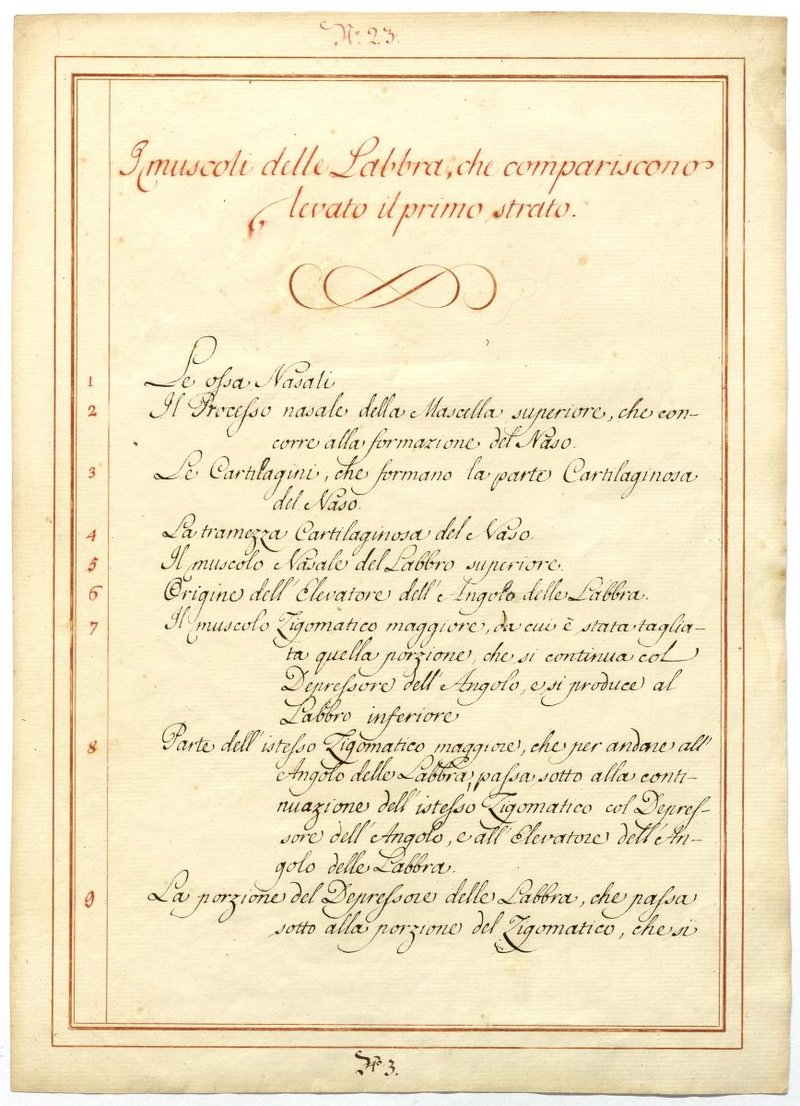 N.º 23.
I muscoli delle Labbra, che compariscono
levato il primo strato.
1 Le ossa Nasali
2 Il Processo nasale della Mascella superiore, che con-
corre alla formazione del Naso.
3 Le Cartilagini, che formano la parte Cartilaginosa
del Naso.
4 La tramezza Cartilaginosa del Naso.
5 Il muscolo Nasale del Labbro superiore.
6 Origine dell' Elevatore dell' Angolo delle Labbra.
7 Il muscolo Zigomatico maggiore, da cui è stata taglia-
ta quella porzione, che si continua col
Depressore dell' Angolo, e si produce al
Labbro inferiore
8 Parte dell' istesso Zigomatico maggiore, che per andare all'
Angolo delle Labbra, passa sotto alla conti-
nuazione dell' istesso Zigomatico col Depres-
sore dell' Angolo, e all' Elevatore dell' An-
golo delle Labbra.
9 La porzione del Depressore delle Labbra, che passa
sotto alla porzione del Zigomatico, che si
N.º 3.